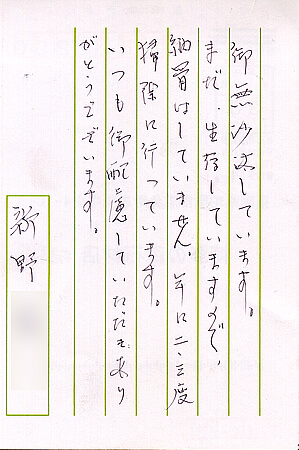 御無沙汰しています。
まだ、生存していますので、
納骨はしていません。年に二、三度
掃除に行っています。
いつも御配慮していただきあり
がとうございます。
新野